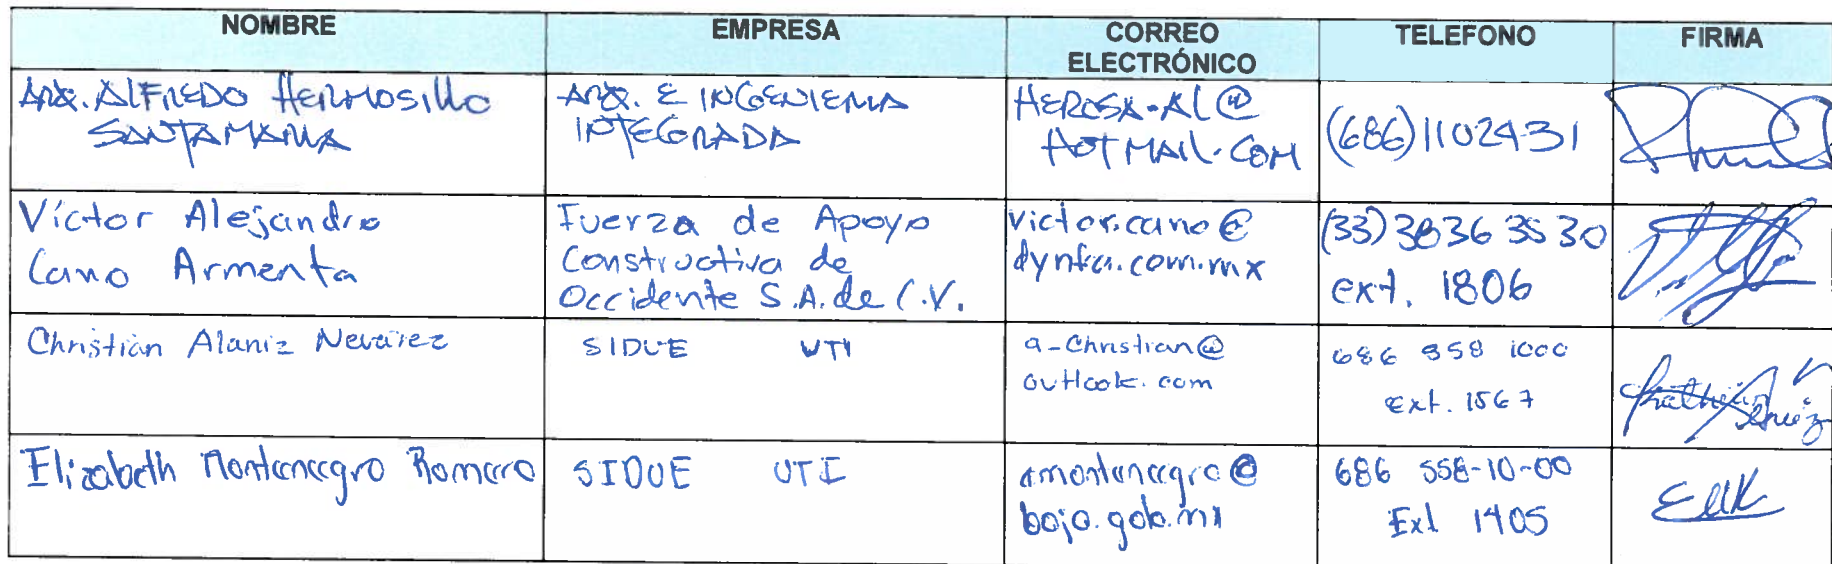 NOMBRE EMPRESA CORREO ELECTRÓNICO TELEFONO FIRMA
ARQ. ALFREDO HERMOSILLO
SANTAMARIA
ARQ. E INGENIERIA
INTEGRADA
HEROSA-AL@
HOTMAIL.COM
(686)1102431
Víctor Alejandro
Cano Armenta
Fuerza de Apoyo
Constructiva de
Occidente S.A. de C.V.
victor.cano@
dynfa.com.mx
(33) 3836 3530
ext. 1806
Christian Alaniz Nevárez
SIDUE UTI
a-Christian@
outlook.com
686 558 1000
Ext. 1567
Elizabeth Montenegro Romero
SIDUE UTI
emontenegro@
baja.gob.mx
686 558-10-00
Ext 1405